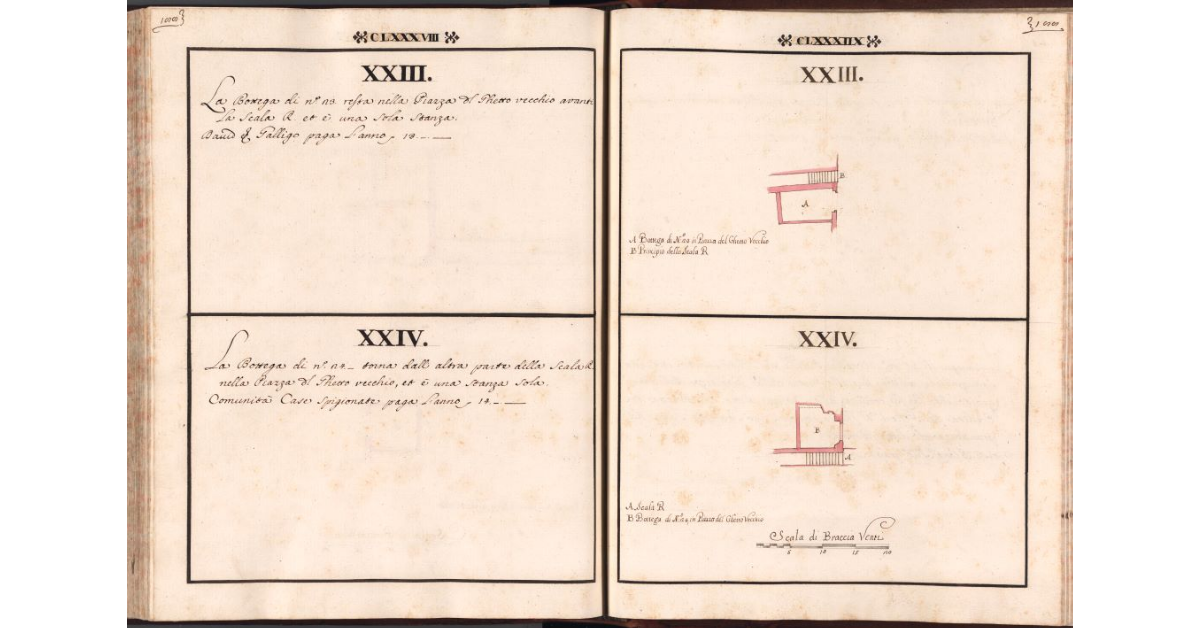 CLXXXVIII
XXIII.
La Bottega di nº 23. resta nella Piazza dl Ghetto vecchio avanti
la Scala R. et è una sola stanza.
David Galligo paga l'anno 18.-.—
XXIV.
La Bottega di nº 24. torna dall altra parte della Scala R.
nella Piazza dl Ghetto vecchio, et è una stanza sola.
Comunità Case spigionate paga l'anno 14.-.—
CLXXXIIX
XXIII.
B
A
A Bottega di Nº 23 in Piazza del Ghetto Vecchio
B Principio della Scala R
XXIV.
B
A
A Scala R
B Bottega di Nº 24 in Piazza del Ghetto Vecchio
Scala di Braccia Venti
5 10 15 20